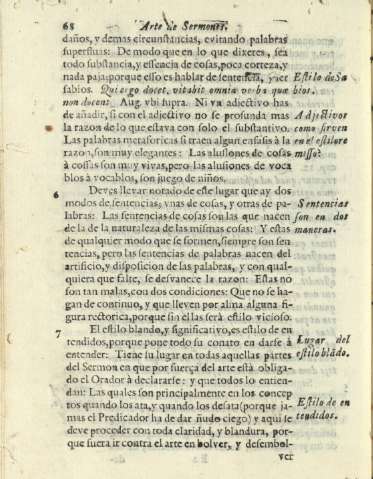 68 Arte de Sermones.
daños, y demas circunstancias, evitando palabras
superfluas: De modo que en lo que dixeres, sea
todo substancia, y essencia de cosas, poca corteza, y
nada paja; porque esso es hablar de sentencia, y ser
Estilo de Sa
sabios. Qui ergo docet, vitabit omnia verba quæ
bios.
non docent Aug. vbi supra. Ni vn adiectivo has
de añadir, si con el adiectivo no se profunda mas
Adjectivos
la razon de lo que estava con solo el substantivo.
como sirven
Las palabras metaforicas si traen algun enfasis à la
en el estilo re
razon, son muy elegantes: Las alusiones de cosas
misso?
à cossas son muy vivas, pero las alusiones de voca
blos à vocablos, son juego de niños.
6
Deves llevar notado de este lugar que ay dos
modos de sentencias; vnas de cosas, y otras de pa-
Sentencias
labras: Las sentencias de cosas son las que nacen
son en dos
de la de la naturaleza de las mismas cosas: Y estas
maneras.
de qualquier modo que se formen, siempre son sen
tencias, pero las sentencias de palabras nacen del
artificio, y disposicion de las palabras, y con qual-
quiera que falte, se desvanece la razon: Estas no
son tan malas, con dos condiciones: Que no se ha-
gan de continuo, y que lleven por alma alguna fi-
gura rectorica, porque sin ellas serà estilo vicioso.
7
El estilo blando, y significativo, es estilo de en
tendidos, porque pone todo su conato en darse à
Lugar del
entender: Tiene su lugar en todas aquellas partes
estilo blãdo.
del Sermon en que por fuerça del arte està obliga-
do el Orador à declararse: y que todos lo entien-
dan: Las quales son principalmente en los concep
tos quando los ata, y quando los desata (porque ja-
Estilo de en
mas el Predicador ha de dar ñudo ciego) y aqui se
tendidos.
deve proceder con toda claridad, y blandura, por-
que fuera ir contra el arte en bolver, y desembol-
ver